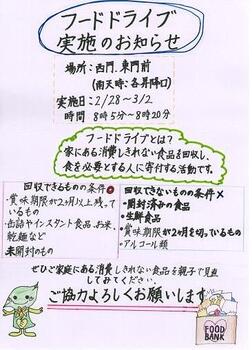 フードドライブ
実施のお知らせ
場所:西門、東門前
(雨天時:各昇降口)
実施日:2/28~3/2
時間 8時5分~8時20分
フードドライブとは?
家にある消費しきれない食品を回収し、
食を必要とする人に寄付する活動です。
回収できるものの条件○
・賞味期限が2ヶ月以上残っ
ているもの
・缶詰やインスタント食品、お米、
乾麺など
未開封のもの
回収できないものの条件×
・開封済みの食品
・生鮮食品
・賞味期限が2ヶ月を切っているもの
・アルコール類
ぜひご家庭にある消費しきれない食品を親子で見直
してみてください。
ご協力よろしくお願いします
FOOD
BANK